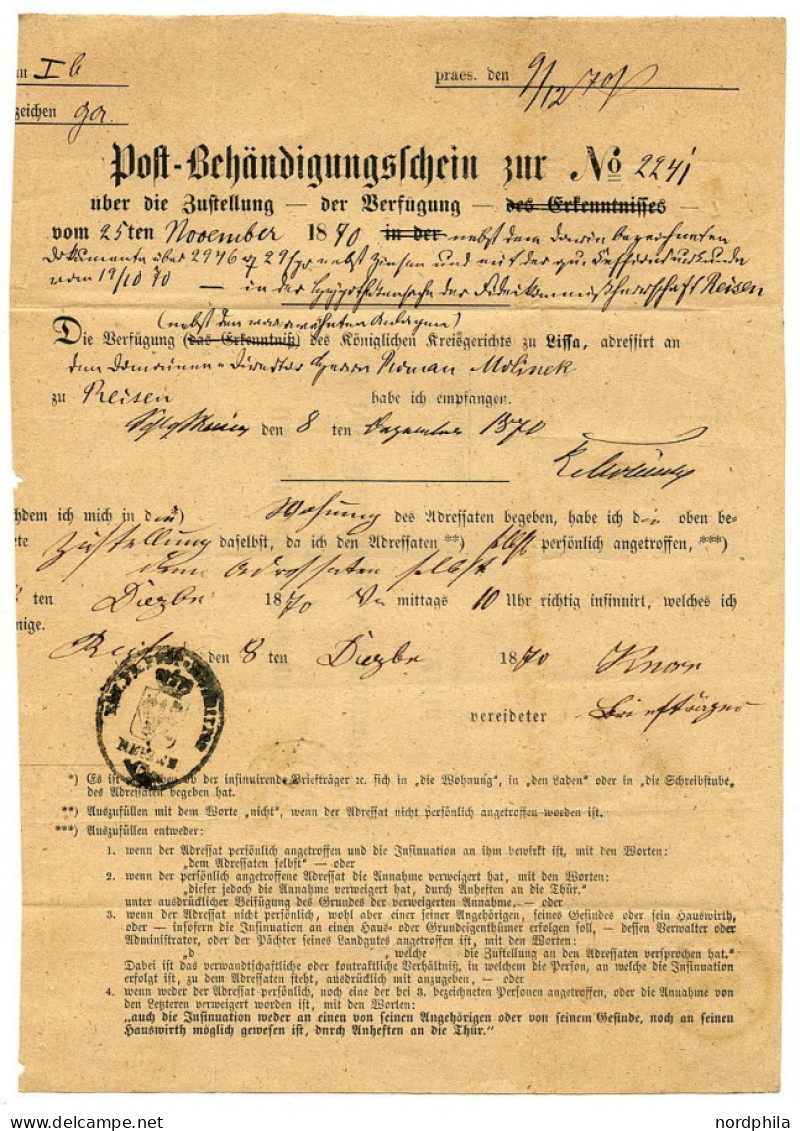 I b praes. den 9/12 70
zeichen
Post-Behändigungsschein zur No 2241
über die Zustellung — der Verfügung — des Erkenntnisses —
vom 25ten November 1870 in der nebst dem darin bezeichneten
Dokumente über 2946 29 nebst Zinsen und mit der
vom 19/10 70 — in der Hypothekensache der Fideikommißherrschaft Reisen
(nebst den vorerwähnten Anlagen)
Die Verfügung (das Erkenntniß) des Königlichen Kreisgerichts zu Lissa, adressirt an
den Domainen-Direktor Herrn Roman Molinek
zu Reisen habe ich empfangen.
den 8 ten Dezember 1870
ich mich in den*) Wohung des Adressaten begeben, habe ich die oben be-
Zustellung daselbst, da ich den Adressaten **) selbst persönlich angetroffen, ***)
dem Adressaten selbst
ten Dezbr 1870 mittags 10 Uhr richtig insinuirt, welches ich
den 8 ten Dezbr 1870 Knorr
vereideter Briefträger
*) Es ist anzugeben ob der insinuirende Briefträger ꝛc. sich in „die Wohnung“, in „den Laden“ oder in „die Schreibstube“
des Adressaten begeben hat.
**) Auszufüllen mit dem Worte „nicht“, wenn der Adressat nicht persönlich angetroffen worden ist.
***) Auszufüllen entweder:
1. wenn der Adressat persönlich angetroffen und die Insinuation an ihm bewirkt ist, mit den Worten:
„dem Adressaten selbst“ — oder
2. wenn der persönlich angetroffene Adressat die Annahme verweigert hat, mit den Worten:
„dieser jedoch die Annahme verweigert hat, durch Anheften an die Thür.“
unter ausdrücklicher Beifügung des Grundes der verweigerten Annahme, — oder
3. wenn der Adressat nicht persönlich, wohl aber einer seiner Angehörigen, seines Gesindes oder sein Hauswirth,
oder — insofern die Insinuation an einen Haus- oder Grundeigenthümer erfolgen soll, — dessen Verwalter oder
Administrator, oder der Pächter seines Landgutes angetroffen ist, mit den Worten:
„d , welche die Zustellung an den Adressaten versprochen hat.“
Dabei ist das verwandtschaftliche oder kontraktliche Verhältniß, in welchem die Person, an welche die Insinuation
erfolgt ist, zu dem Adressaten steht, ausdrücklich mit anzugeben, — oder
4. wenn weder der Adressat persönlich, noch eine der bei 3. bezeichneten Personen angetroffen, oder die Annahme von
den Letzteren verweigert worden ist, mit den Worten:
„auch die Insinuation weder an einen von seinen Angehörigen oder von seinem Gesinde, noch an seinen
Hauswirth möglich gewesen ist, durch Anheften an die Thür.“
nordphila